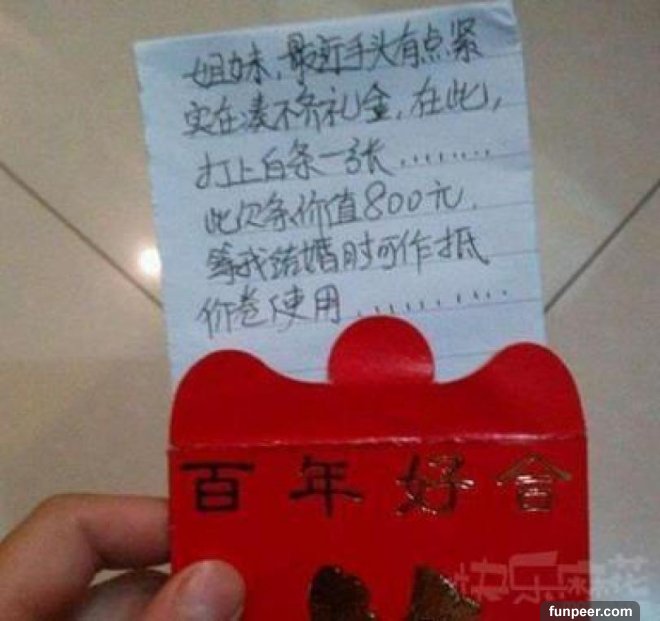 姐妹,最近手头有点紧
实在凑不齐礼金,在此,
打上白条一张........
此欠条价值800元.
等我结婚时可作抵
价卷使用...........
百年好合
快乐麻花
funpeer.com